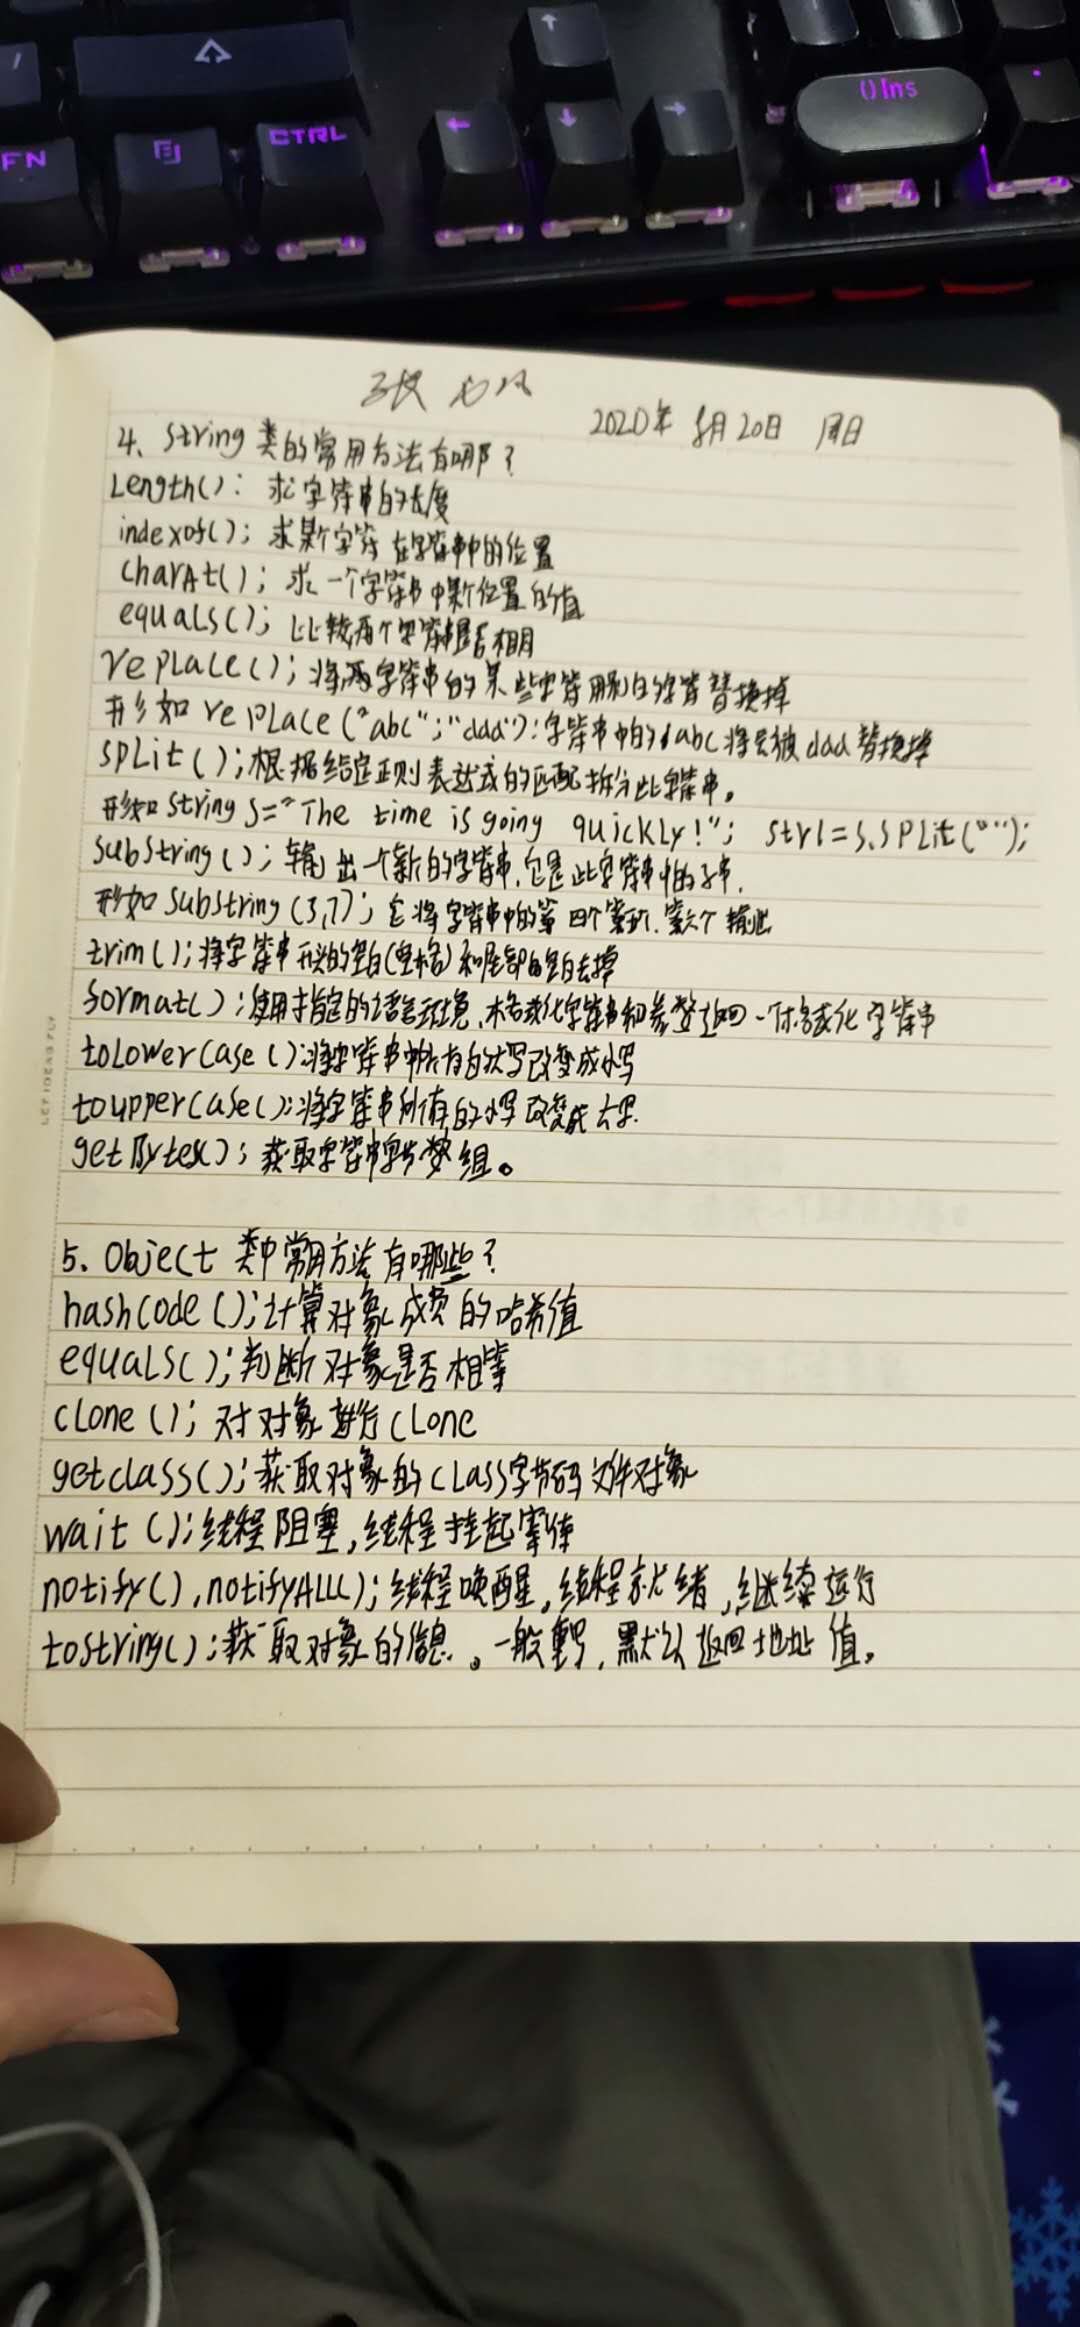 FN
CTRL
()Ins
张
2020年 8月20日 周日
4、String 类的常用方法有哪?
Length(): 求字符串的长度
indexof(); 求某个字符在字符串中的位置
charAt(); 求一个字符串中某个位置的值
equals(); 比较两个字符串是否相同
replace(); 将两字符串的某些字符用别的字符替换掉
形如 replace("abc";"ddd"):字符串中的abc将会被ddd替换掉
split();根据给定正则表达式的匹配拆分此字符串。
形如String S="The time is going quickly!"; Str1=S.split("");
substring(); 输出一个新的字符串,它是此字符串中的子串.
形如substring(3,7); 它将字符串中的第四个第五个、第六个输出
trim();将字符串开头的空白(空格)和尾部的空白去掉
format();使用指定的语言环境、格式化字符串和参数返回一个格式化字符串
toLowerCase():将字符串中所有的大写改变成小写
toupperCase();将字符串所有的小写改变成大写.
getBytes(); 获取字符串字节数组。
5、Object 类中常用方法有哪些?
hashCode();计算对象成员的哈希值
equals();判断对象是否相等
clone(); 对对象进行clone
getclass();获取对象的class字节码文件对象
wait();线程阻塞,线程挂起等待
notify(),notifyAll();线程唤醒,线程就绪,继续运行
toString();获取对象的信息。一般重写,默认返回地址值。